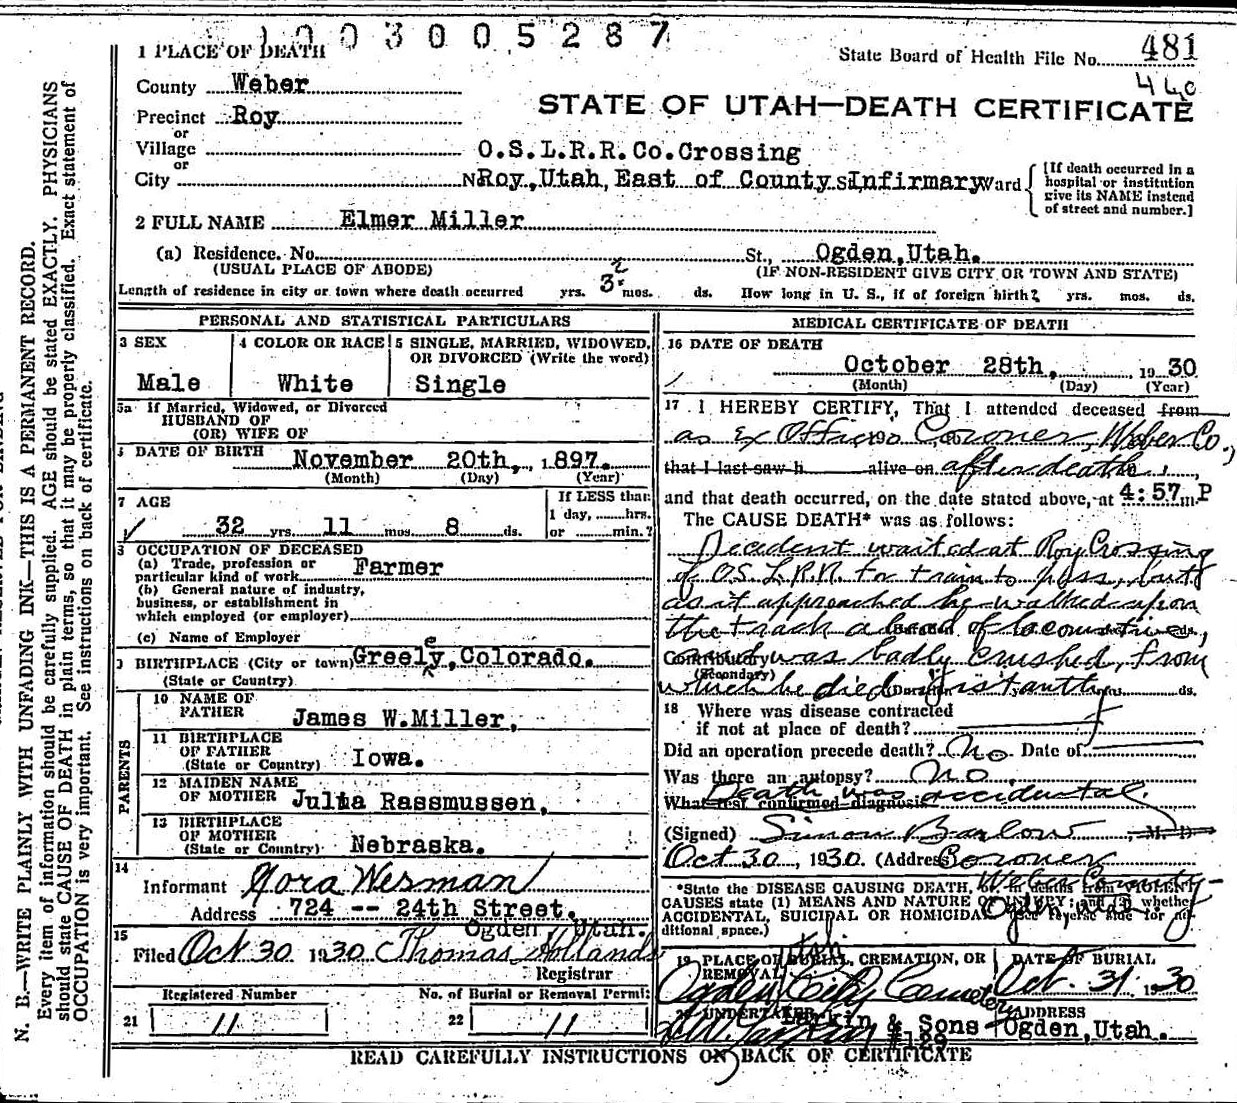 1003005287
1 PLACE OF DEATH
State Board of Health File No. 481
County Weber
STATE OF UTAH—DEATH CERTIFICATE
Precinct Roy
or
Village
O.S.L.R.R.Co.Crossing
or
City
Roy, Utah, East of County Infirmary Ward
[If death occurred in a
hospital or institution
give its NAME instead
of street and number.]
2 FULL NAME Elmer Miller
(a) Residence. No. St., Ogden, Utah.
(USUAL PLACE OF ABODE) (IF NON-RESIDENT GIVE CITY OR TOWN AND STATE)
Length of residence in city or town where death occurred yrs. mos. ds. How long in U. S., if of foreign birth? yrs. mos. ds.
PERSONAL AND STATISTICAL PARTICULARS
3 SEX
Male
4 COLOR OR RACE
White
5 SINGLE, MARRIED, WIDOWED,
OR DIVORCED (Write the word)
Single
5a If Married, Widowed, or Divorced
HUSBAND OF
(OR) WIFE OF
DATE OF BIRTH November 20th, 1897.
(Month) (Day) (Year)
7 AGE
32 yrs. 11 mos. 8 ds.
If LESS than
1 day, hrs.
or min.?
OCCUPATION OF DECEASED
(a) Trade, profession or
particular kind of work Farmer
(b) General nature of industry,
business, or establishment in
which employed (or employer)
(c) Name of Employer
BIRTHPLACE (City or town) Greely, Colorado.
(State or Country)
PARENTS
10 NAME OF
FATHER James W. Miller,
11 BIRTHPLACE
OF FATHER
(State or Country) Iowa.
12 MAIDEN NAME
OF MOTHER Julia Rassmussen,
13 BIRTHPLACE
OF MOTHER
(State or Country) Nebraska.
14
Informant Nora Wesman
Address 724 -- 24th Street.
Ogden, Utah.
15
Filed Oct 30 1930 Thomas Holland
Registrar
Registered Number
21 11
No. of Burial or Removal Permit
22 11
MEDICAL CERTIFICATE OF DEATH
16 DATE OF DEATH
October 28th, 1930
(Month) (Day) (Year)
17 I HEREBY CERTIFY, That I attended deceased from
as Ex Officio Coroner, Weber Co.,
that I last saw h alive on after death,
and that death occurred, on the date stated above, at 4:57 m P
The CAUSE DEATH* was as follows:
Decedent waited at Roy Crossing
of O.S.L.R.R. for train to pass, but
as it approached he walked upon
the track ahead of locomotive,
Contributory and was badly crushed, from
(Secondary)
which he died instantly
18 Where was disease contracted
if not at place of death?
Did an operation precede death? No Date of
Was there an autopsy? No
Death was accidental.
What test confirmed diagnosis
(Signed) Simon Barlow M. D.
Oct 30, 1930. (Address) Coroner
Weber County
Ogden, Utah
*State the DISEASE CAUSING DEATH, or in deaths from VIOLENT
CAUSES state (1) MEANS AND NATURE OF INJURY; and (2) whether
ACCIDENTAL, SUICIDAL OR HOMICIDAL (See reverse side for ad-
ditional space.)
19 PLACE OF BURIAL, CREMATION, OR
REMOVAL
Ogden City Cemetery
DATE OF BURIAL
Oct. 31. 1930
20 UNDERTAKER
Larkin & Sons
#129
ADDRESS
Ogden, Utah.
READ CAREFULLY INSTRUCTIONS ON BACK OF CERTIFICATE
N. B.—WRITE PLAINLY WITH UNFADING INK—THIS IS A PERMANENT RECORD.
Every item of information should be carefully supplied. AGE should be stated EXACTLY. PHYSICIANS
should state CAUSE OF DEATH in plain terms, so that it may be properly classified. Exact statement of
OCCUPATION is very important. See instructions on back of certificate.